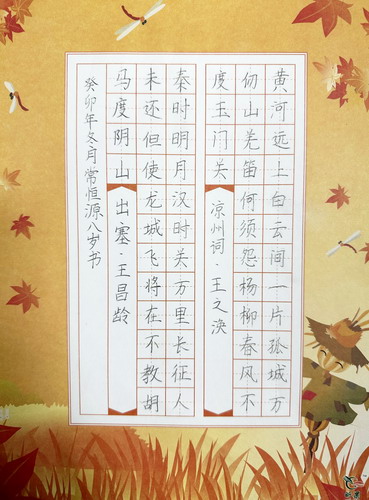 黄河远上白云间一片孤城万
仞山羌笛何须怨杨柳春风不
度玉门关 凉州词·王之涣
秦时明月汉时关万里长征人
未还但使龙城飞将在不教胡
马度阴山 出塞·王昌龄
癸卯年冬月常恒源八岁书